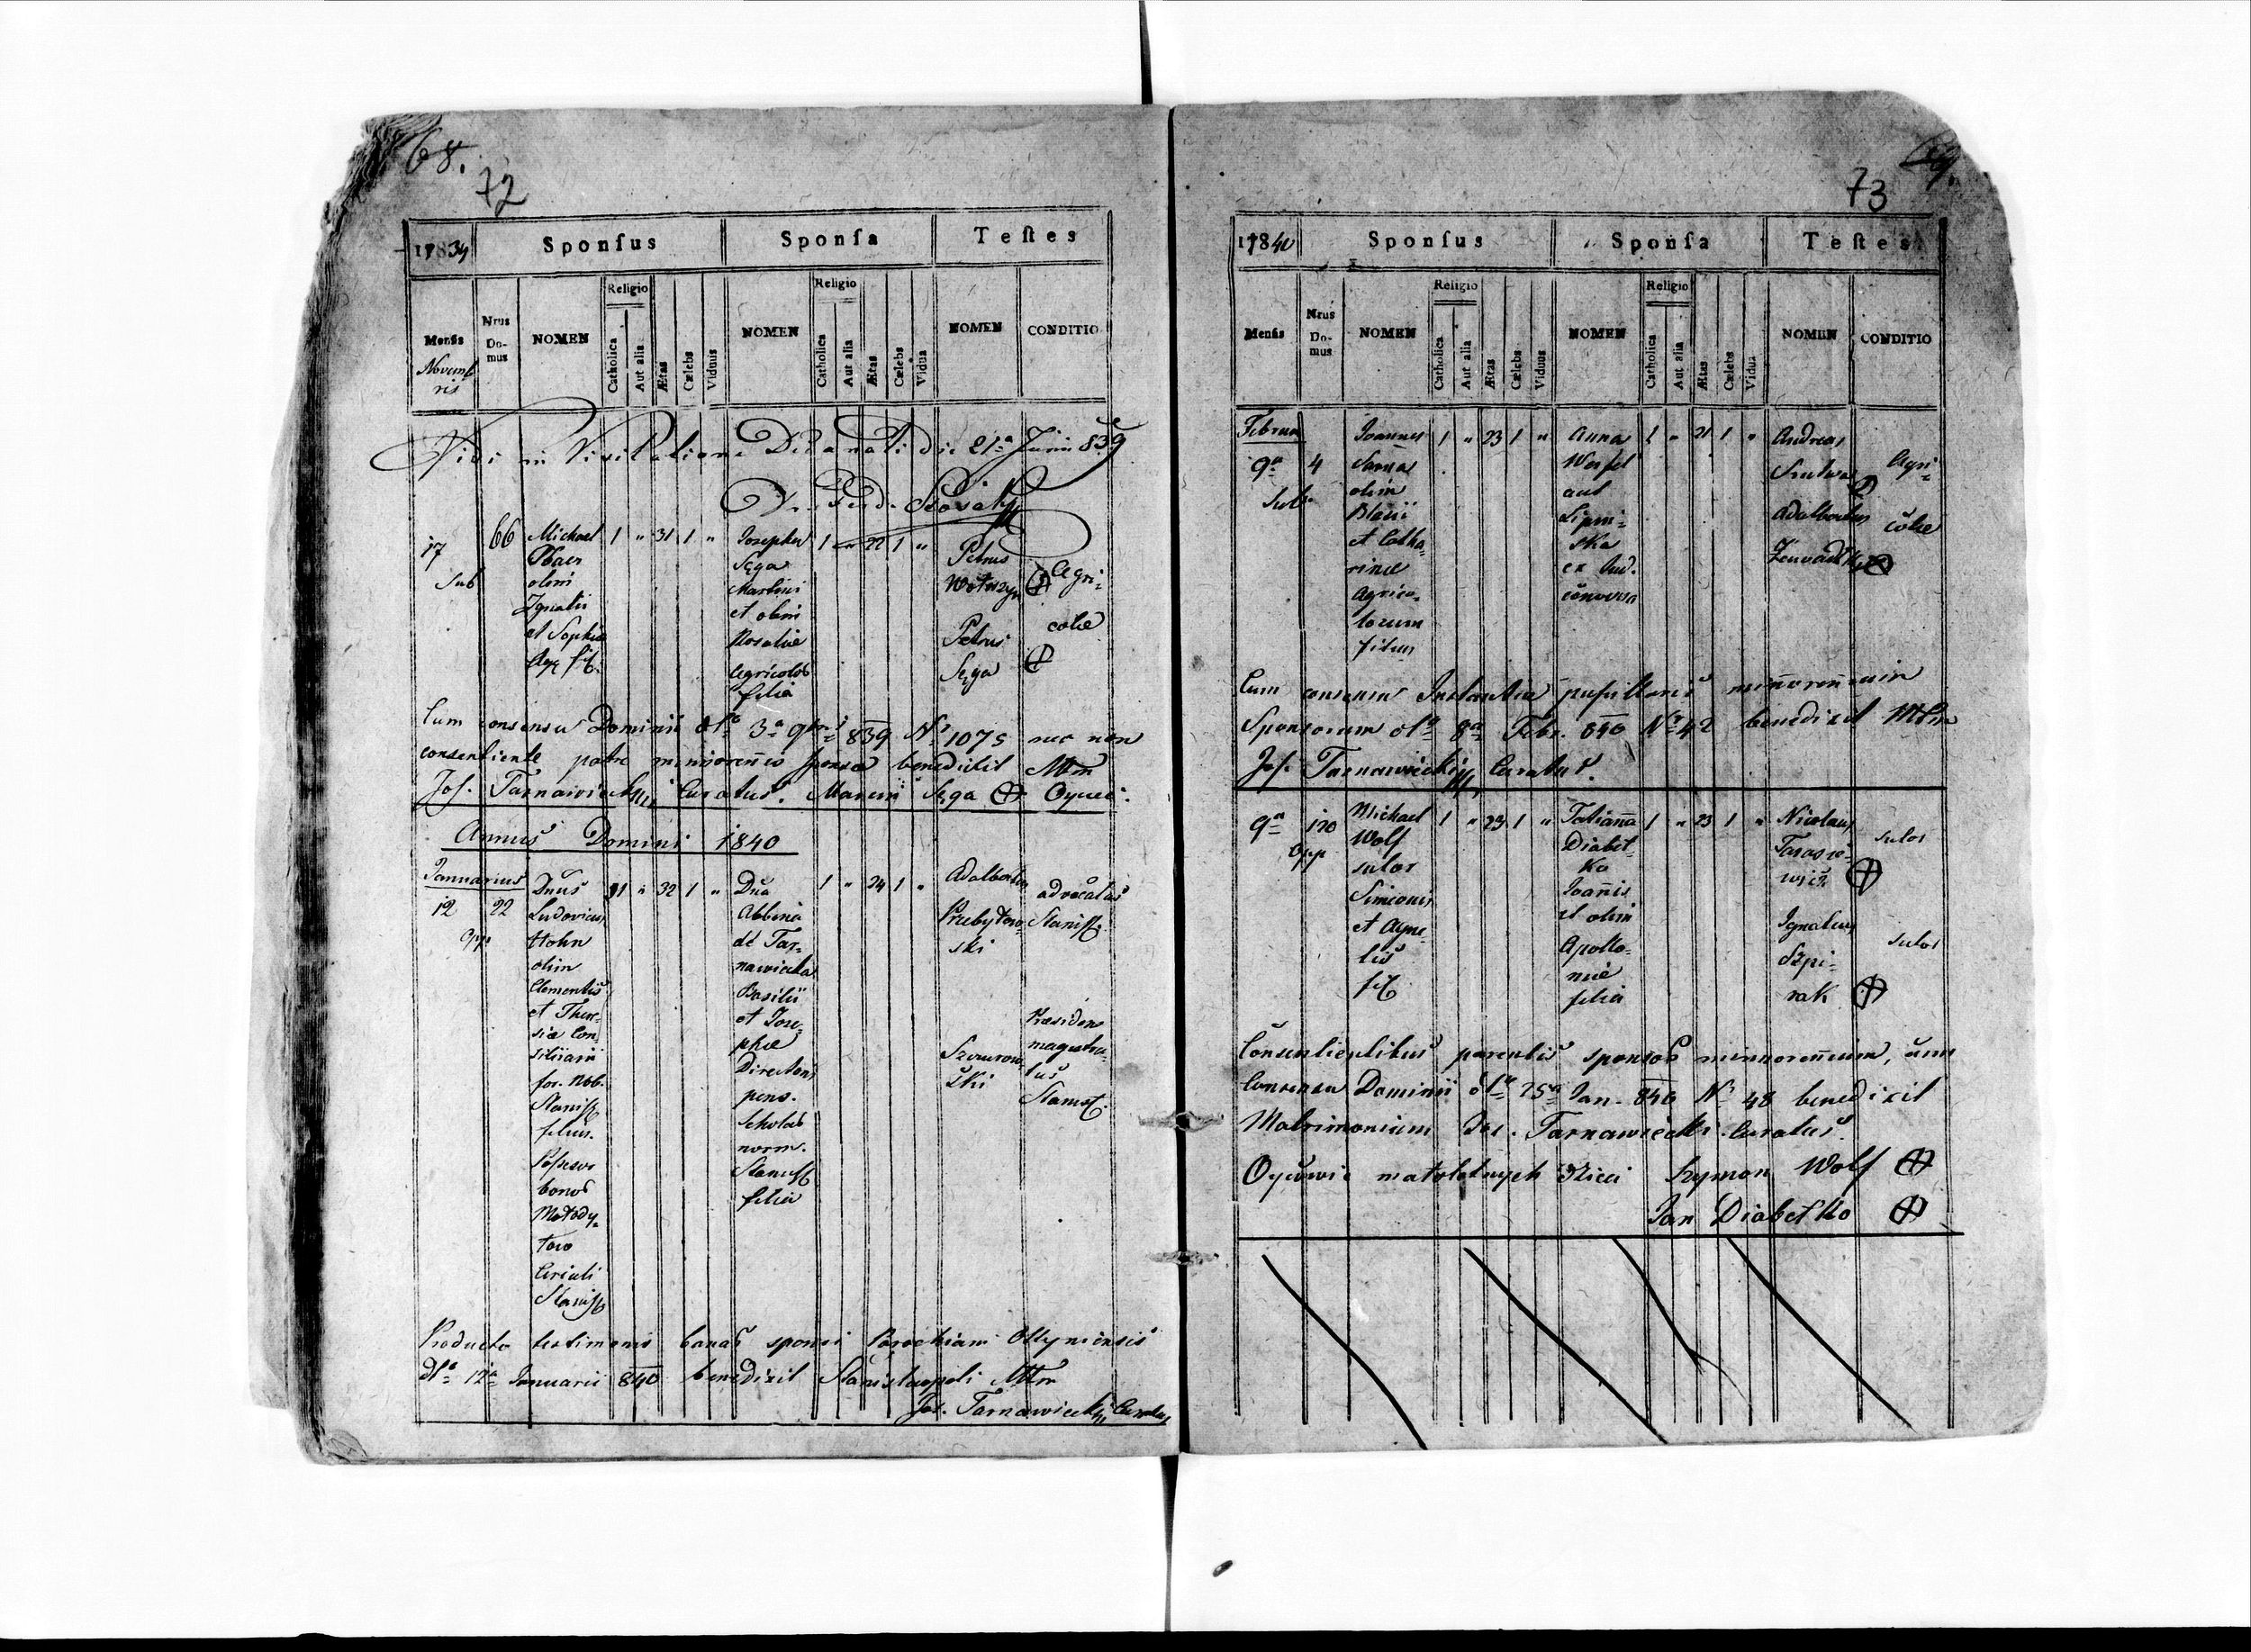 68.
72
1839
Sponſus
Sponſa
Teſtes
Menſis
Novemb
ris
Nrus
Do-
mus
NOMEN
Religio
Catholica
Aut alia
Ætas
Cælebs
Viduus
NOMEN
Religio
Catholica
Aut alia
Ætas
Cælebs
Vidua
NOMEN
CONDITIO
Vidi in Visitatione Decanali die 21a Junii 839
17
Sub
66
Michael
olim
Ignatii
et Sophia
Agr fil.
1 " 31 1 "
Josepha
Sęga
Martini
et olim
Rosaliæ
Agricolar
filia
1 " 22 1 "
Petrus
Petrus
Sęga
Agri-
colæ
Cum consensu Dominii dto 3a 9bris 839 Nr 1075 nec non
consentiente patre minorennis sponsæ benedixit Mtm
Jos. Tarnawiecki Curatus. Marcin Sęga Oyciec.
Annus Domini 1840
Januarius
12
22
Dnus
Ludovicus
Hohn
olim
Clementis
et There-
siæ Con-
siliarii
for. Nob.
Stanisl
filius.
bonor
1 " 32 1 "
Dna
Albina
de Tar-
nawiecka
Basilii
et Jose-
phæ
Directoris
pens.
Scholar
norm.
Stanisl
filia
1 " 24 1 "
Adalbertus
Przybyłow-
ski
advocatus
Stanisl.
Præsidens
magistra-
tus
Stanisl.
Producto testimonio bannor sponsi Parochiani Ottyniensis
dto 12a Januarii 840 benedixit Stanislaopoli Mtm
Jos. Tarnawiecki Curatus
69.
73
1840
Sponſus
Sponſa
Teſtes
Menſis
Nrus
Do-
mus
NOMEN
Religio
Catholica
Aut alia
Ætas
Cælebs
Viduus
NOMEN
Religio
Catholica
Aut alia
Ætas
Cælebs
Vidua
NOMEN
CONDITIO
Februar
9a
Sub
4
Joannes
Sarna
olim
Blasii
et Catha-
rinæ
Agrico-
larum
filius
1 " 23 1 "
Anna
aut
Lipni-
ska
ex Jud.
conversa
1 " 21 1 "
Andreas
Adalbertus
Agri-
colæ
Cum consensu Instantiæ pupillaris minorennium
Sponsorum dto 8a Febr. 840 Nr 42 benedixit Mtm
Jos. Tarnawiecki Curatus.
9a
Opp
120
Michael
Wolf
sutor
Simeonis
et Agne-
tis
fil
1 " 23 1 "
Tatianna
Diabet-
ka
Joannis
et olim
Apollo-
niæ
filia
1 " 23 1 "
Nicolaus
Taraso-
wicz
Ignatius
Szpi-
rak
sutor
sutor
Consentientibus parentis sponsor minorennium, cum
Consensu Dominii dto 25a Jan. 840 Nr 48 benedixit
Matrimonium Jos. Tarnawiecki Curatus.
Oycowie małoletnych dzieci Szymon Wolf
Jan Diabetko